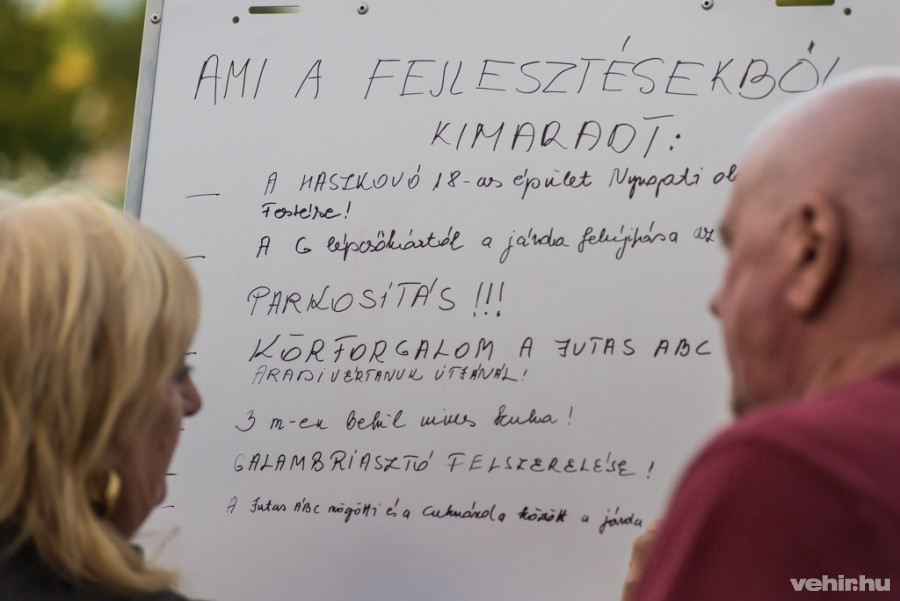 AMI A FEJLESZTÉSEKBŐL
KIMARADT:
A HASZKOVÓ 18-as épület Nyugati ol
Festése!
A G lépcsőháztól a járda felújítása az
PARKOSÍTÁS !!!
KÖRFORGALOM A JUTAS ABC
ARADI VÉRTANUK ÚTJÁNÁL!
3 m-en belül nincs kuka!
GALAMBRIASZTÓ FELSZERELÉSE!
A Jutas ABC mögötti és a cukrászda között a járda
vehir.hu